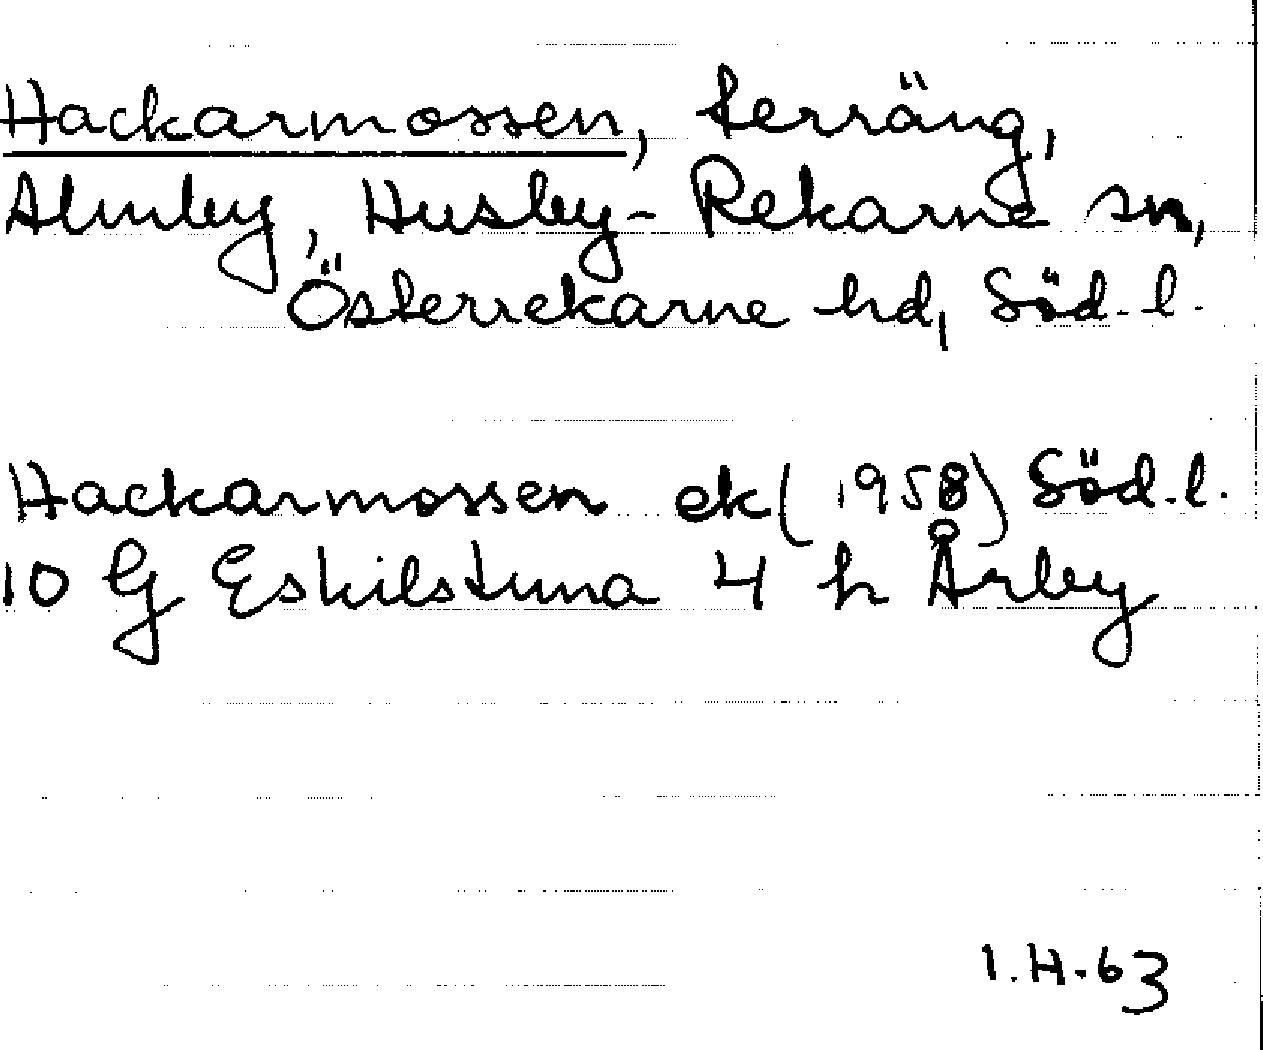 Hackarmossen, terräng,
Almby, Husby-Rekarne sn,
Österrekarne hd, Söd. l.
Hackarmossen ek (1958) Söd. l.
10 G Eskilstuna 4 h Årby
I.H.63